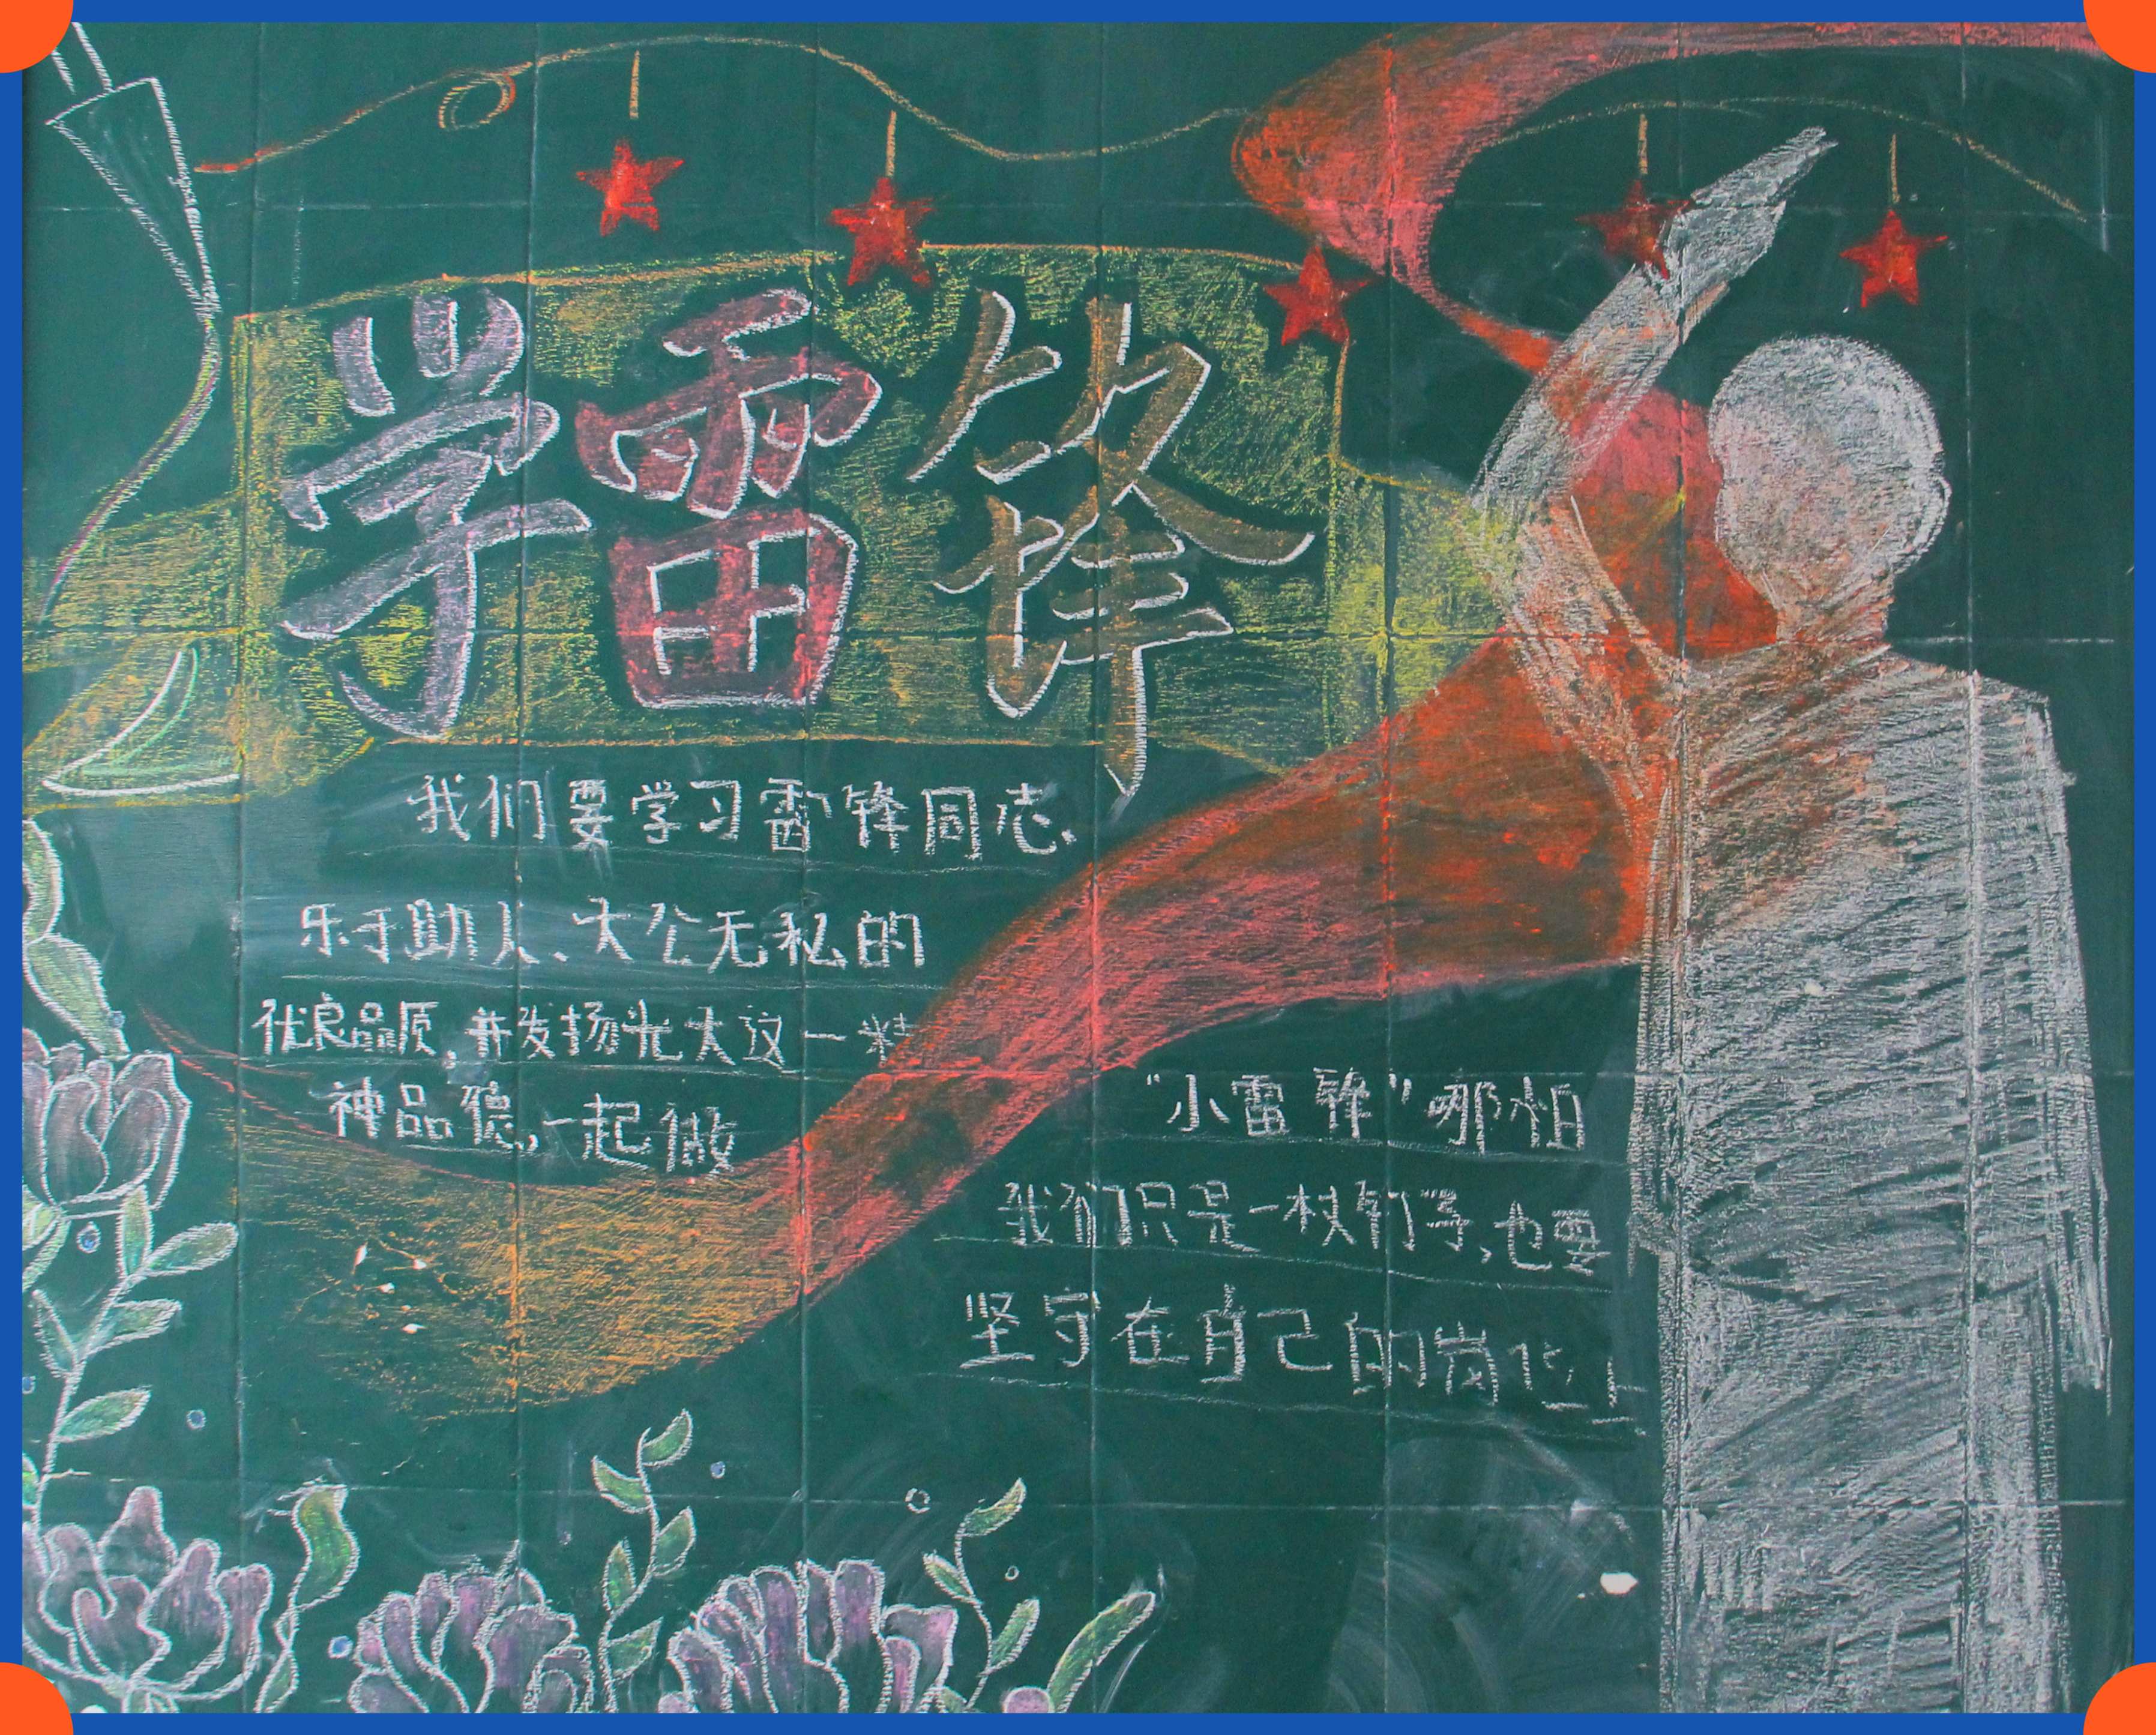 学雷锋
我们要学习雷锋同志、
乐于助人、大公无私的
优良品质,并发扬光大这一精
神品德,一起做
“小雷锋”哪怕
我们只是一枚钉子,也要
坚守在自己的岗位上